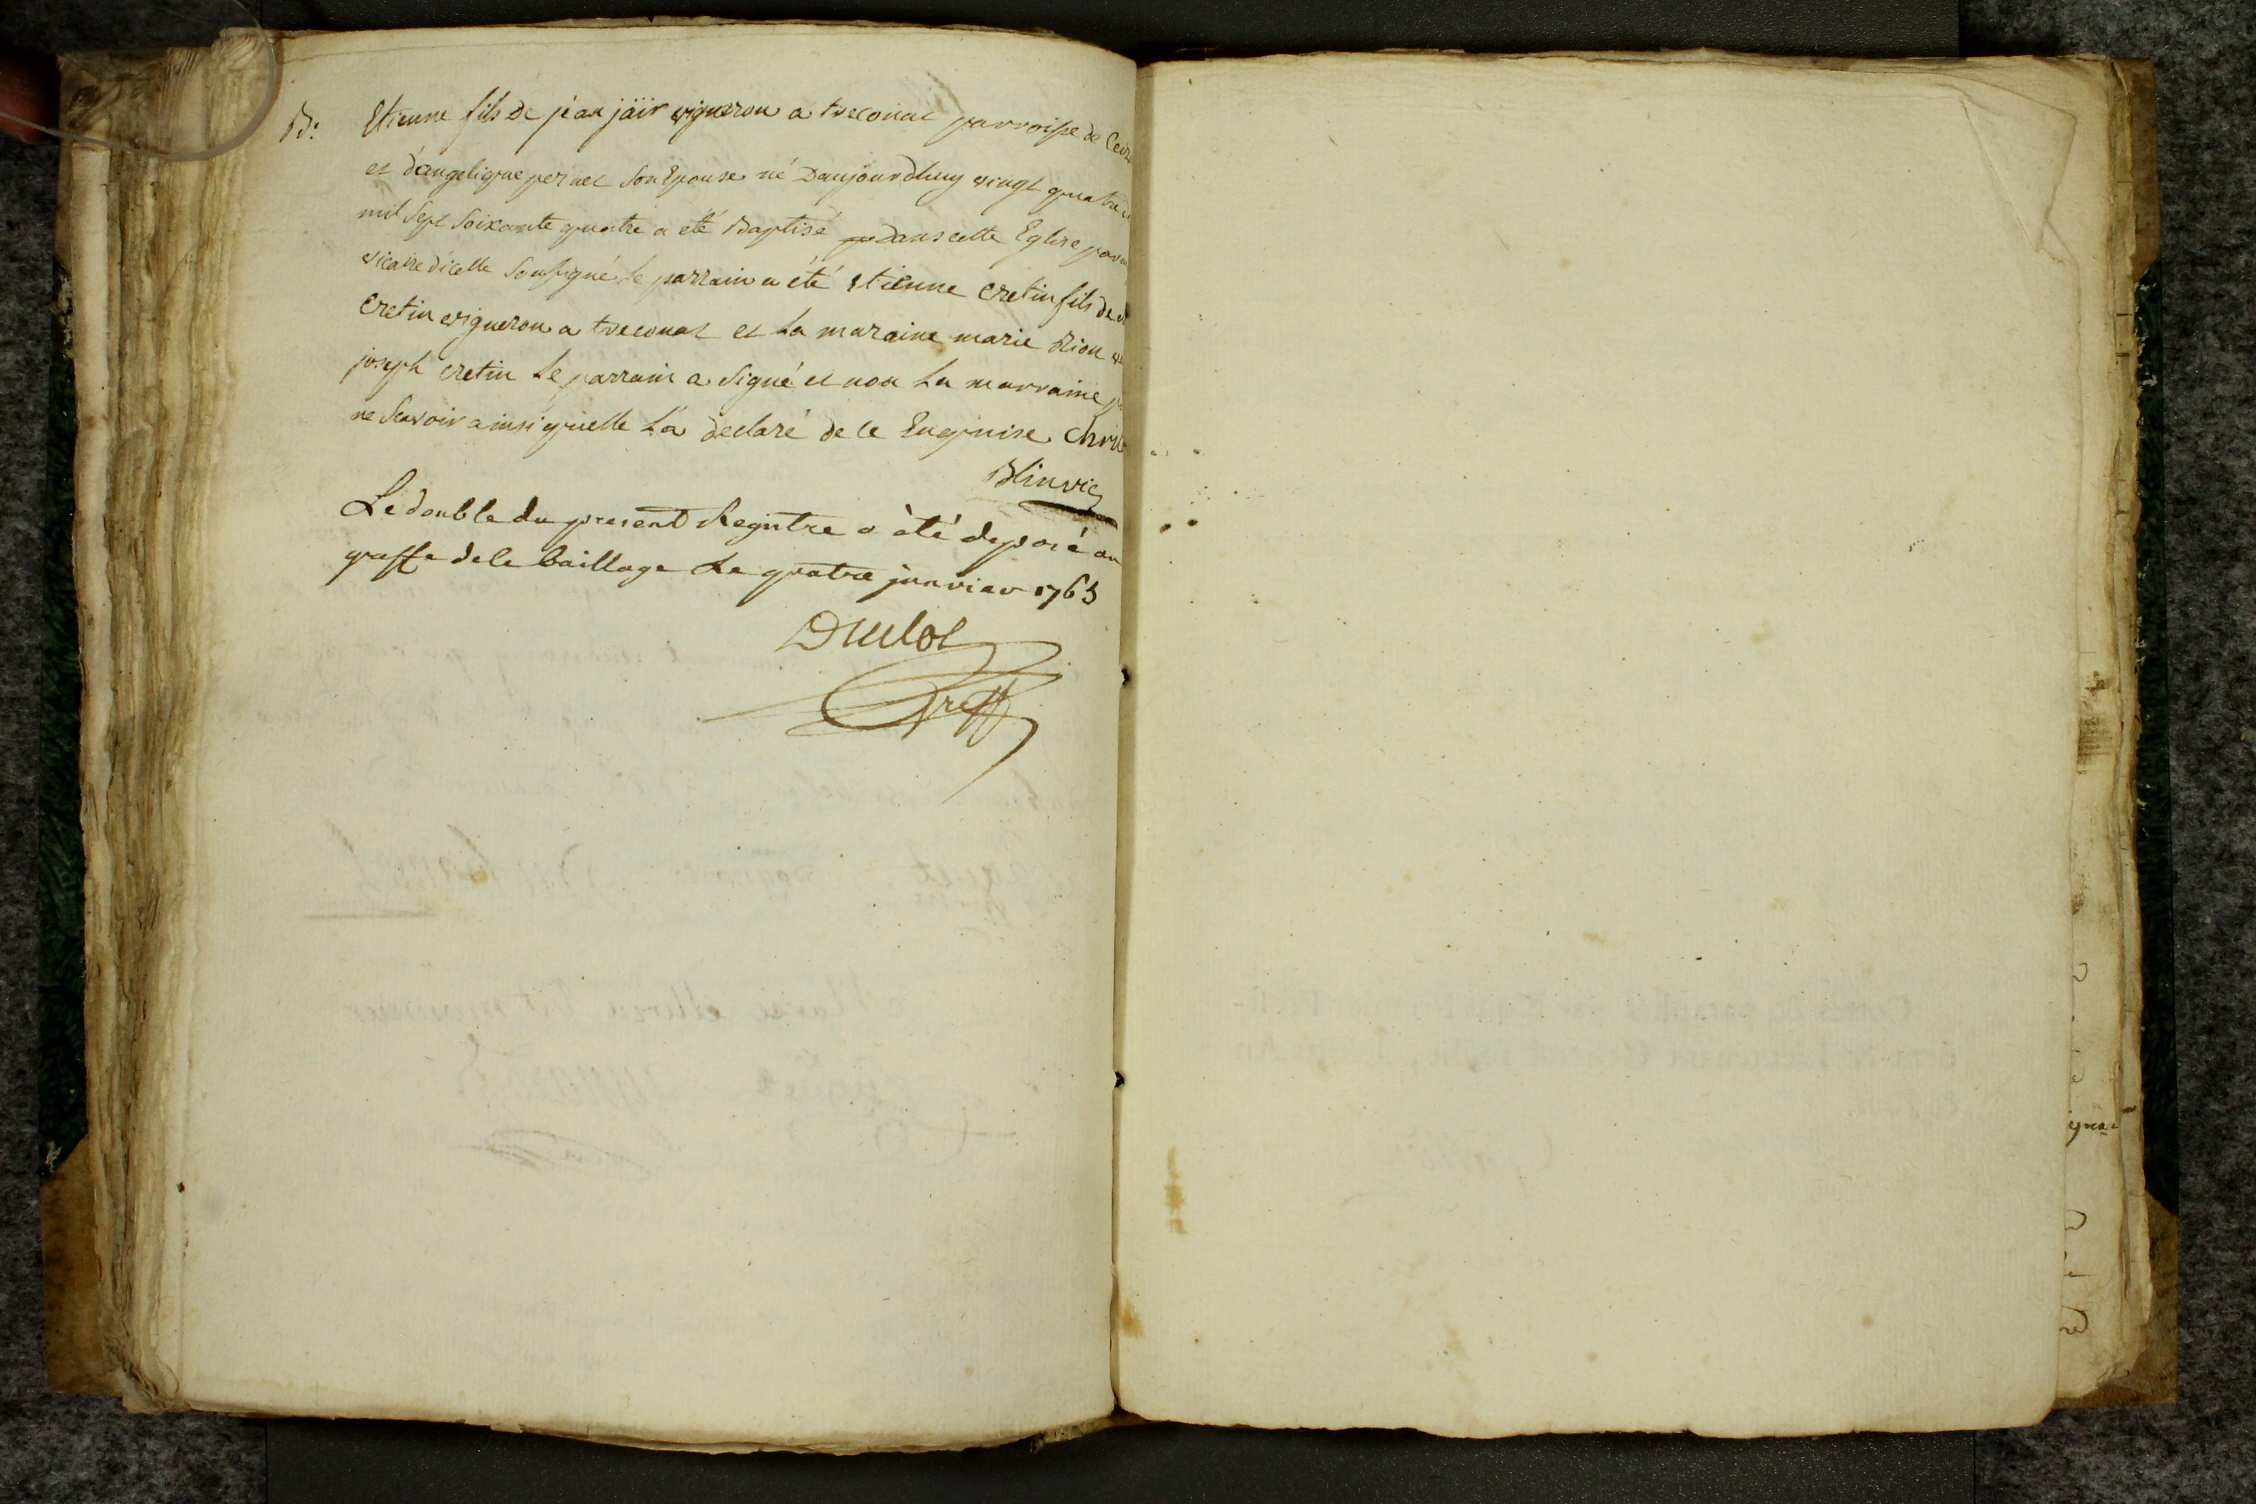 B: Etienne fils de jean jäir vigneron a treconas parroisse de
et d'angelique pernet son Epouse né Daujourdhuy vingt quatre
mil sept soixante quatre a été Baptisé dans cette Eglise
vicaire dicelle soussigné le parrain a été etienne cretin fils de
cretin vigneron a treconas et la maraine marie Rion
joseph cretin le parrain a signé et non la marraine
ne scavoir ainsi quelle l'a declaré de ce Enquise
Le double du present Registre a été deposé au
greffe de ce baillage le quatre janvier 1765
Greff